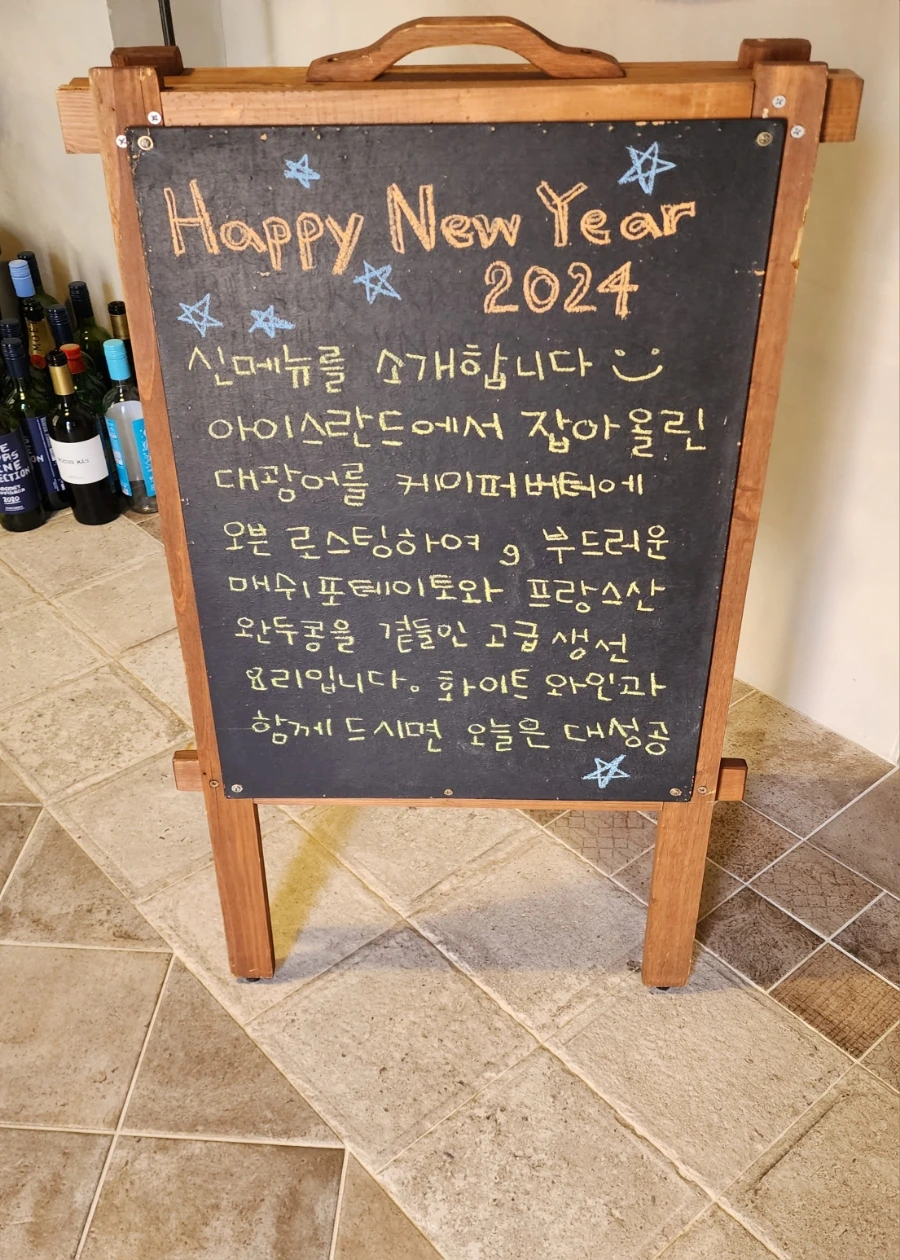 Happy New Year
2024
신메뉴를 소개합니다
아이슬란드에서 잡아올린
대광어를 케이퍼버터에
오븐 로스팅하여, 부드러운
매쉬포테이토와 프랑스산
완두콩을 곁들인 고급생선
요리입니다。 화이트 와인과
함께 드시면 오늘은 대성공
2020